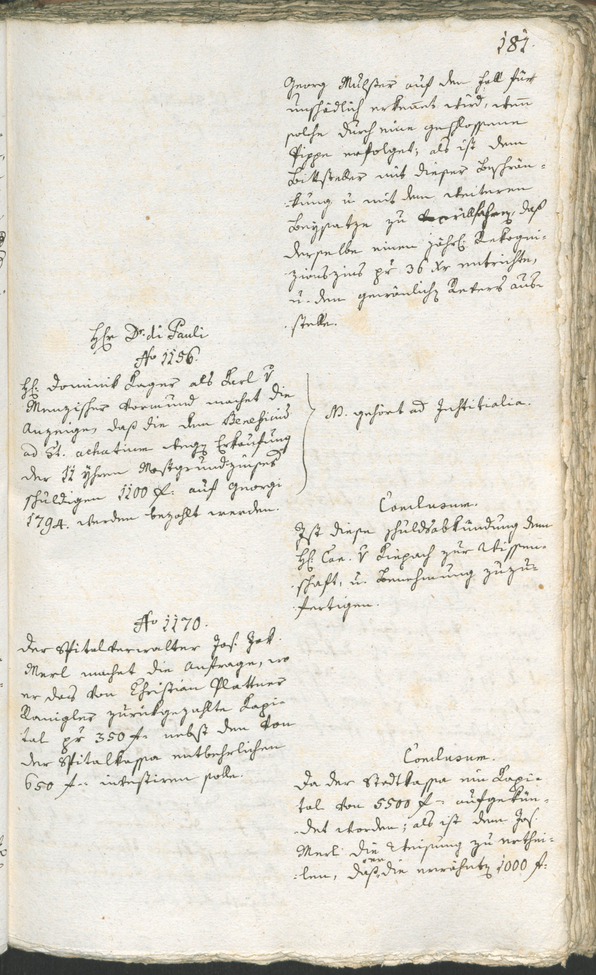 181.
Georg Mulser auf den Fall für
unschädlich erkennet wird, wenn
solche durch eine geschlossene
Pippe erfolget; als ist dem
Bittsteller mit dieser Beschrän-
kung u mit dem weiteren
Beysatze zu daß
derselbe einen jährl. Rekogni-
zionszins pr 36 xr entrichte,
u. den gewönlichen Revers aus-
stelle.
Hr Dr. di Pauli
No 1156.
Hr. Dominik Lager als Karl v
Menzischer Vormund machet die
Anzeigen, daß die dem Beneficium
ad St. Achatium wegen Erkaufung
der 11 Yhren Mostgrundzinses
schuldigen 1100 f. auf Georgi
1794. werden bezahlt werden.
N. gehört ad Justitialia.
Conclusum.
Ist diese Schuldsabkündung dem
Hr. v Kiepach zur Wissen-
schaft, u. Benehmung zuzu-
fertigen.
No 1170.
Der Spitalverwalter Jos. Jak.
Merl machet die Anfrage, wo
er das von Christian Plattner
Rangler zurückgezahlte Kapi-
tal pr 350 f. nebst den von
der Spitalkassa entbehrlichen
650 f. investiren solle.
Conclusum.
Da der Stadtkassa ein Kapi-
tal von 5500 f. aufgekün-
det worden; als ist dem Jos.
Merl die Weisung zu erthei-
len, daß die erwähnten 1000 f.